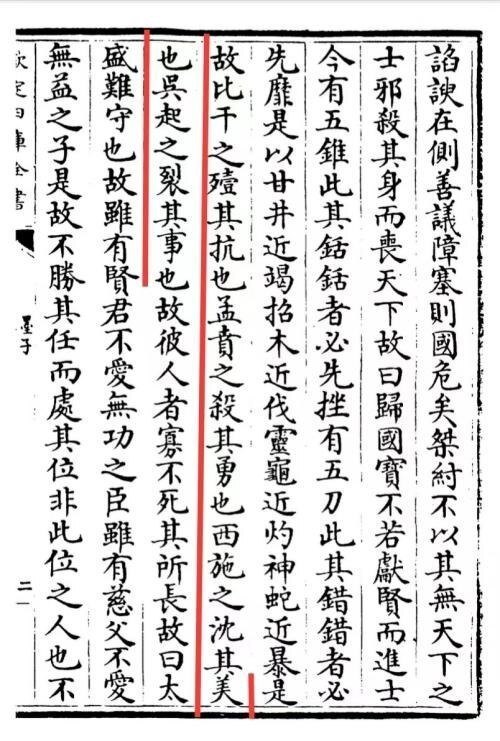 諂諛在側善議障塞則國危矣桀紂不以其無天下之
士邪殺其身而喪天下故曰歸國寶不若獻賢而進士
今有五錐此其銛銛者必先挫有五刀此其錯錯者必
先靡是以甘井近竭招木近伐靈龜近灼神蛇近暴是
故比干之殪其抗也孟賁之殺其勇也西施之沈其美
也吳起之裂其事也故彼人者寡不死其所長故曰太
盛難守也故雖有賢君不愛無功之臣雖有慈父不愛
無益之子是故不勝其任而處其位非此位之人也不
欽定四庫全書
墨子
二